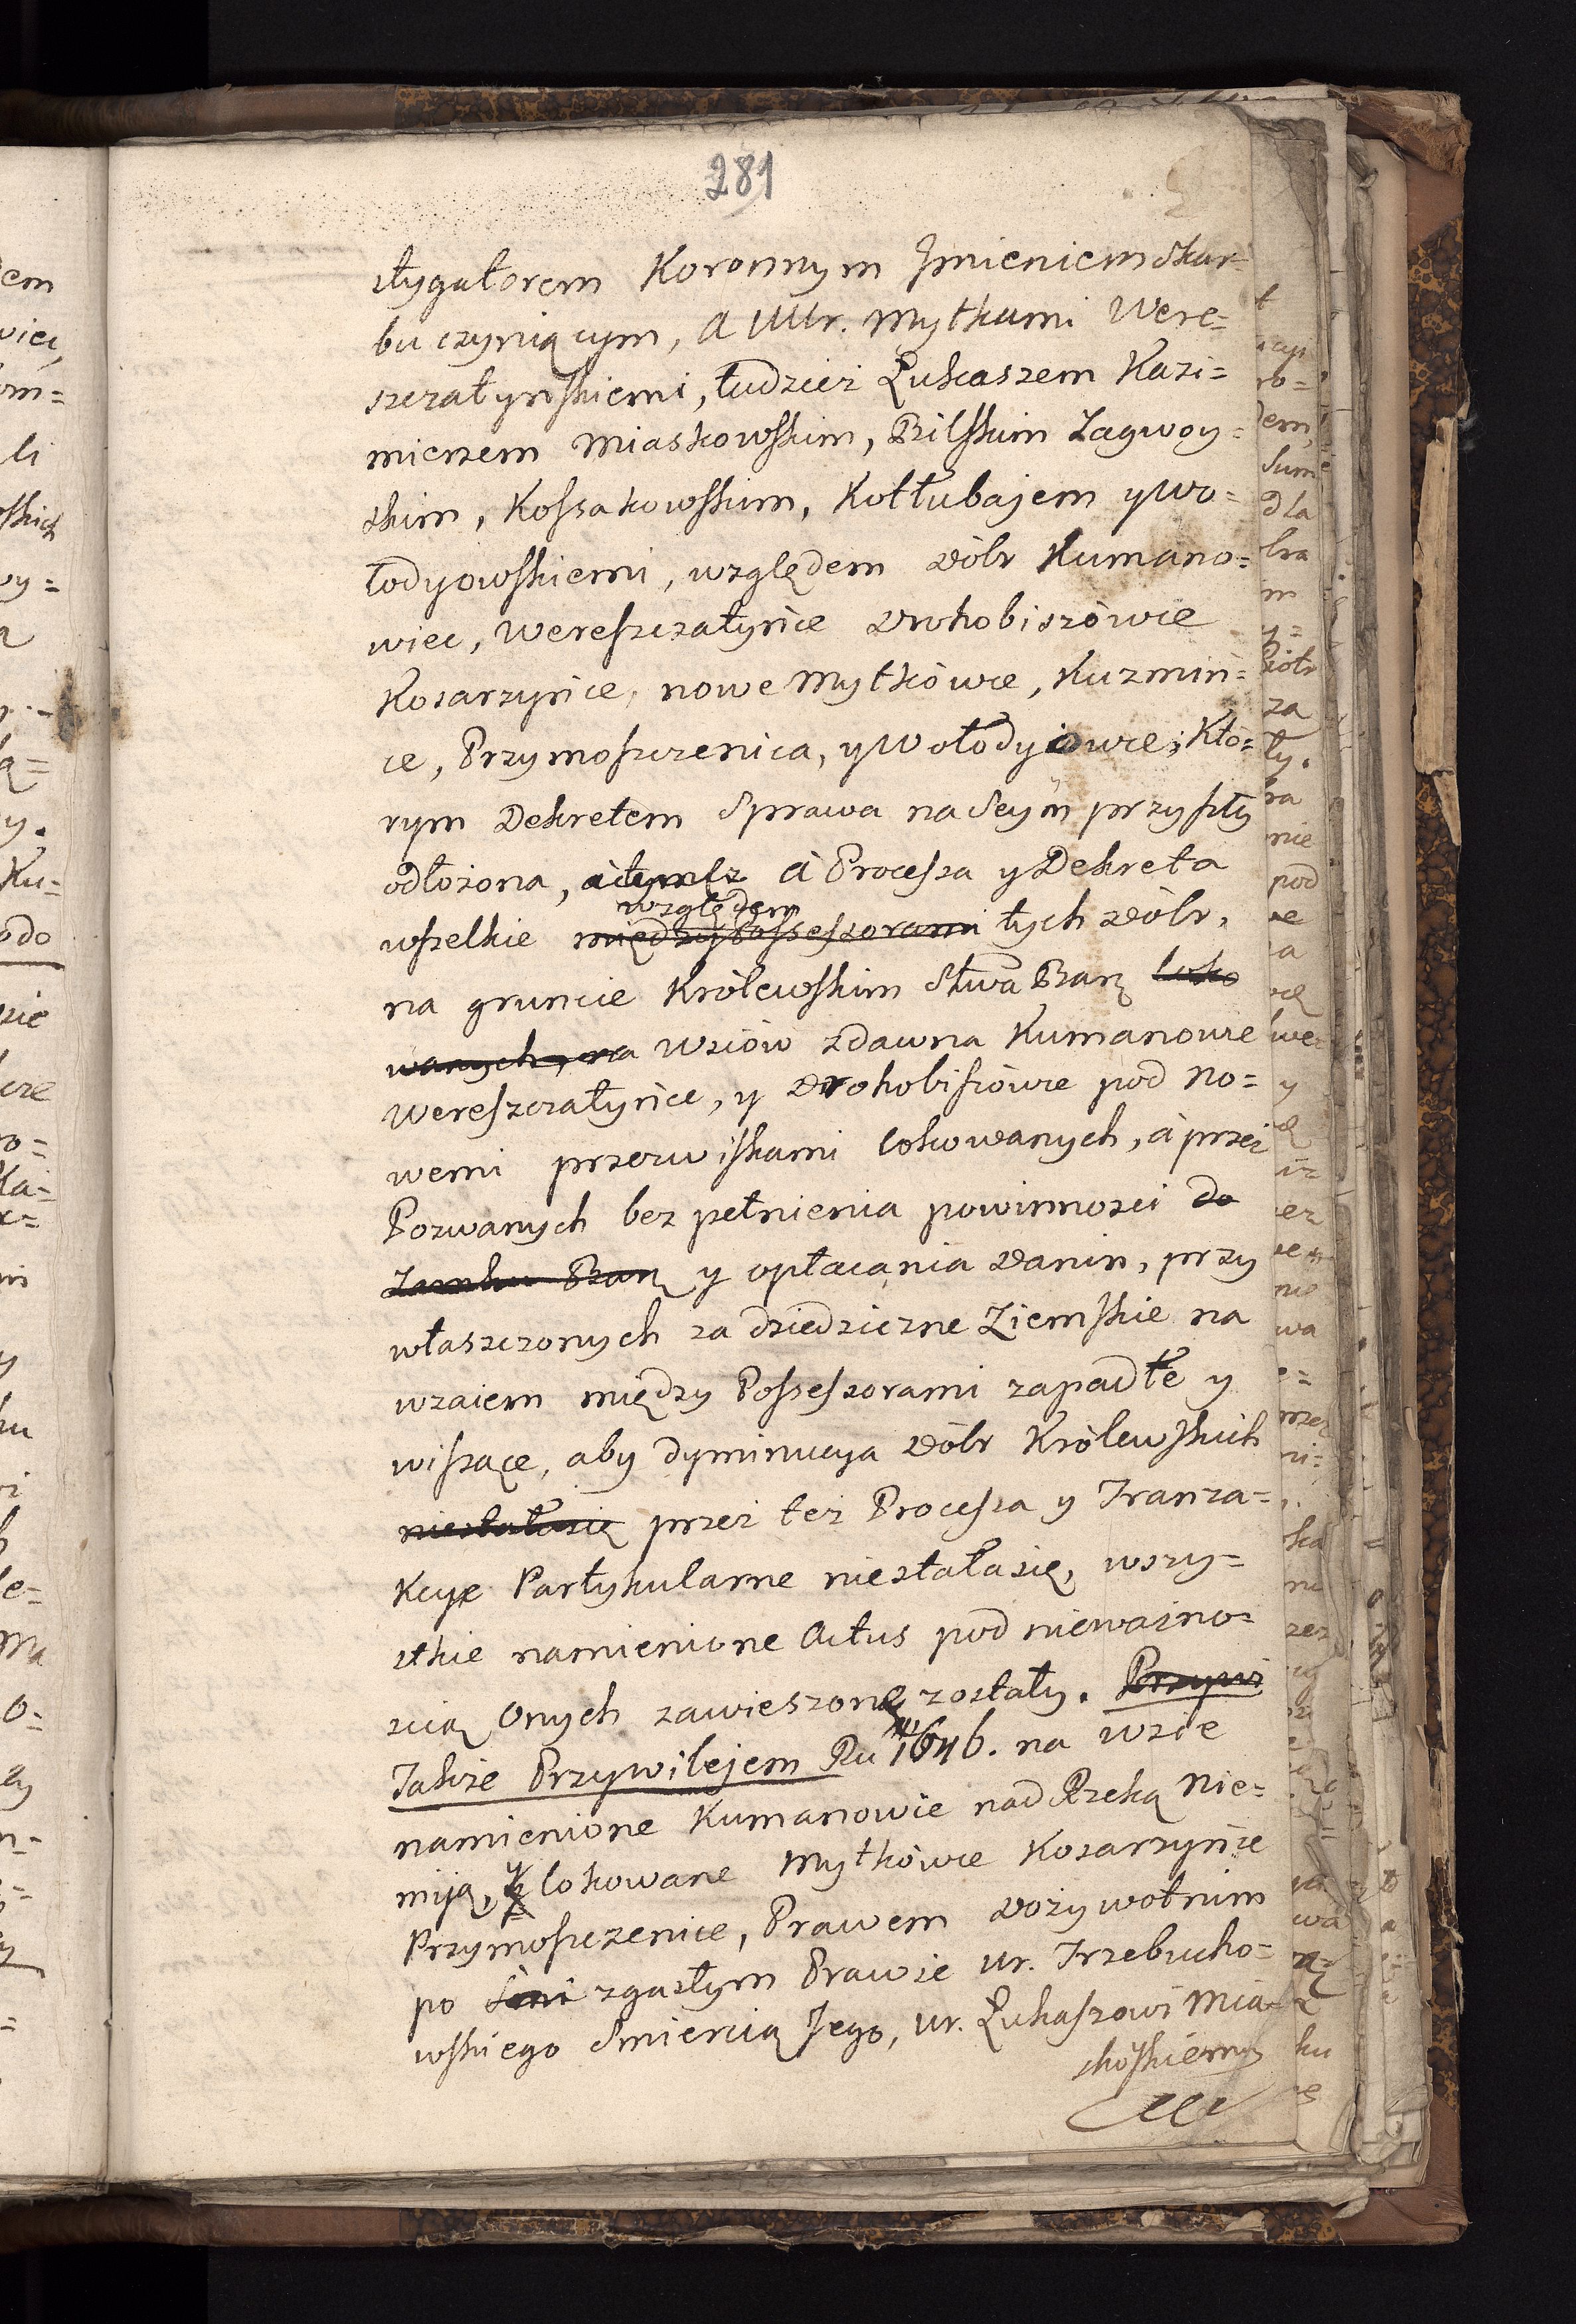 281
stygatorem Koronnym Jmieniem Skar=
bu czyniącym, a UUr. Mytkami Were=
szczatyńskiemi, tudzież Łukaszem Kazi=
mierzem Miaskowskim, Bilskim Zagwoy=
skim, Kossakowskim, Kołłubajem y Wo=
łodyowskiemi, względem Dóbr Kumano=
wiec, Wereszczatyńce Drohobiszówce
Kosarzyńce, nowe Mytkówce, Kuzmiń=
ce, Przymoszczenica, y Wołodyiowce; Któ=
rym Dekretem Sprawa na Seym przyszły
odłożona, a Processa y Dekreta
względem
wszelkie między Possessorami tych Dóbr,
na gruncie Królewskim Stwa Barz loko
wanych, na Wsiów zdawna Kumanowce
Wereszczatyńce, y Drohobiszówce pod no=
wemi przezwiskami lokowanych, á przez
Pozwanych bez pełnienia powinności do
Zamku Barz y opłacania Danin, przy
właszczonych za dziedziczne Ziemskie na
wzaiem między Possessorami zapadłe y
wiszące, aby dyminucya Dóbr Królewskich
niestałasię przez też Processa y Tranza=
kcye Partykularne niestałasię, wszy=
stkie namienione Actus pod nieważno=
scią Onych zawieszone zostały. Przywi
Także Przywilejem Ru 1646. na Wsie
namienione Kumanowce nad Rzeką Nie=
miją, y lokowane Mytkówce Kosarzyńce
Przymoszczenice, Prawem Dożywotnim
po zgasłym Prawie Ur. Trzebucho=
wskiego Smiercią Jego, Ur. Łukaszowi Mia=
skowskiemu